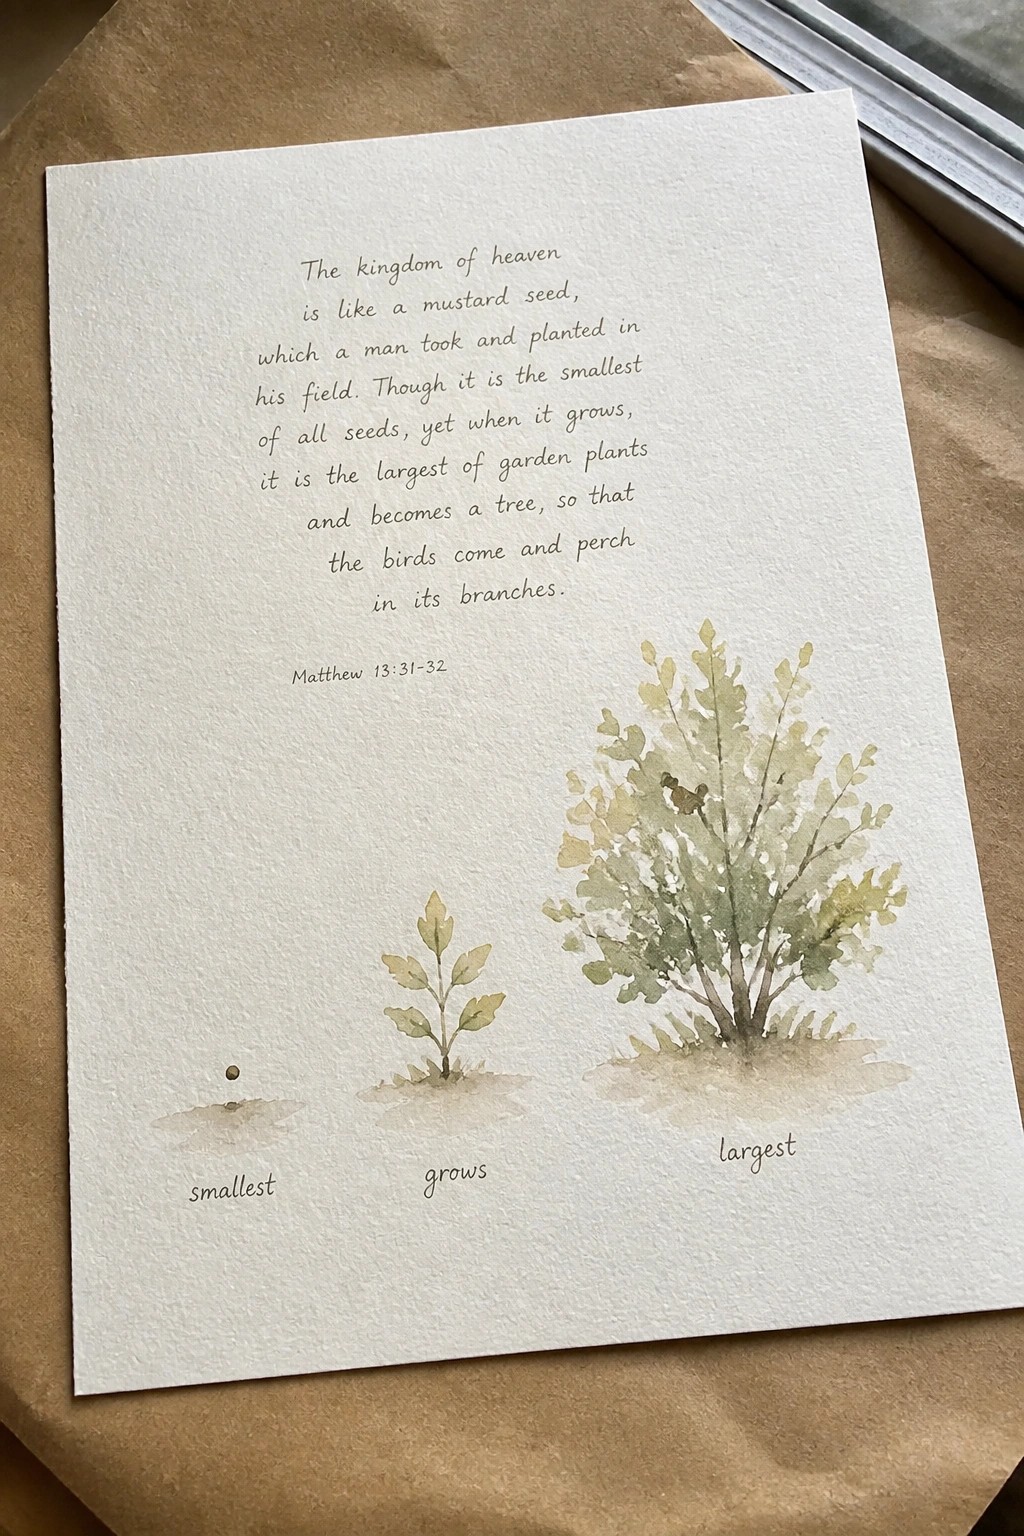 The kingdom of heaven
is like a mustard seed,
which a man took and planted in
his field. Though it is the smallest
of all seeds, yet when it grows,
it is the largest of garden plants
and becomes a tree, so that
the birds come and perch
in its branches.
Matthew 13:31-32
smallest
grows
largest